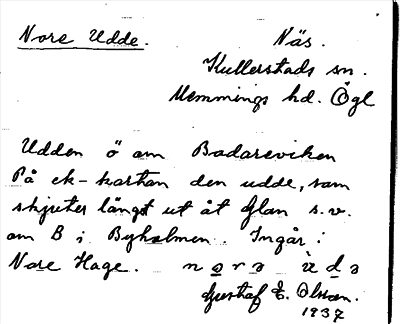 Nore Udde. Näs.
Kullerstads sn.
Memmings hd. Ögl
Udden ö om Badareviken
På ek-kartan den udde, som
skjuter längst ut åt Glan s.v.
om B i Byholmen. Ingår i
Nore Hage. nọrə ùdə
Gustaf E. Olsson.
1937